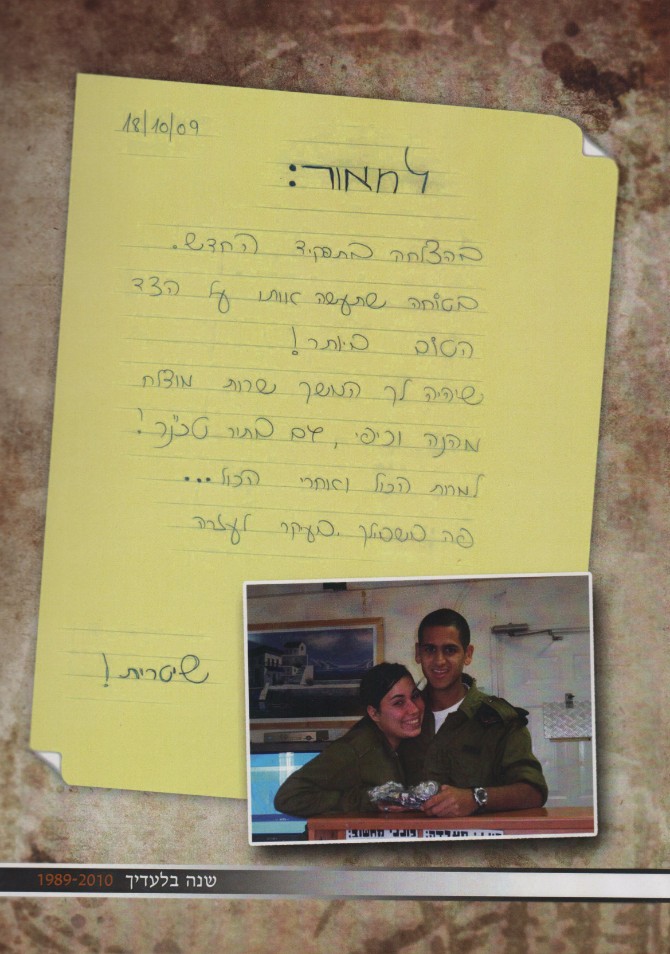 18/10/09
למאור:
בהצלחה בתפקיד החדש.
בטוחה שתעשה אותו על הצד
הטוב ביותר!
שיהיה לך המשך שרות מוצלח
מהנה וכיפי, גם בתור טכ"נר!
למרות הכול ואחרי הכול...
פה בשבילך. בעיקר לעזרה
שיטרית!
1989-2010 שנה בלעדיך